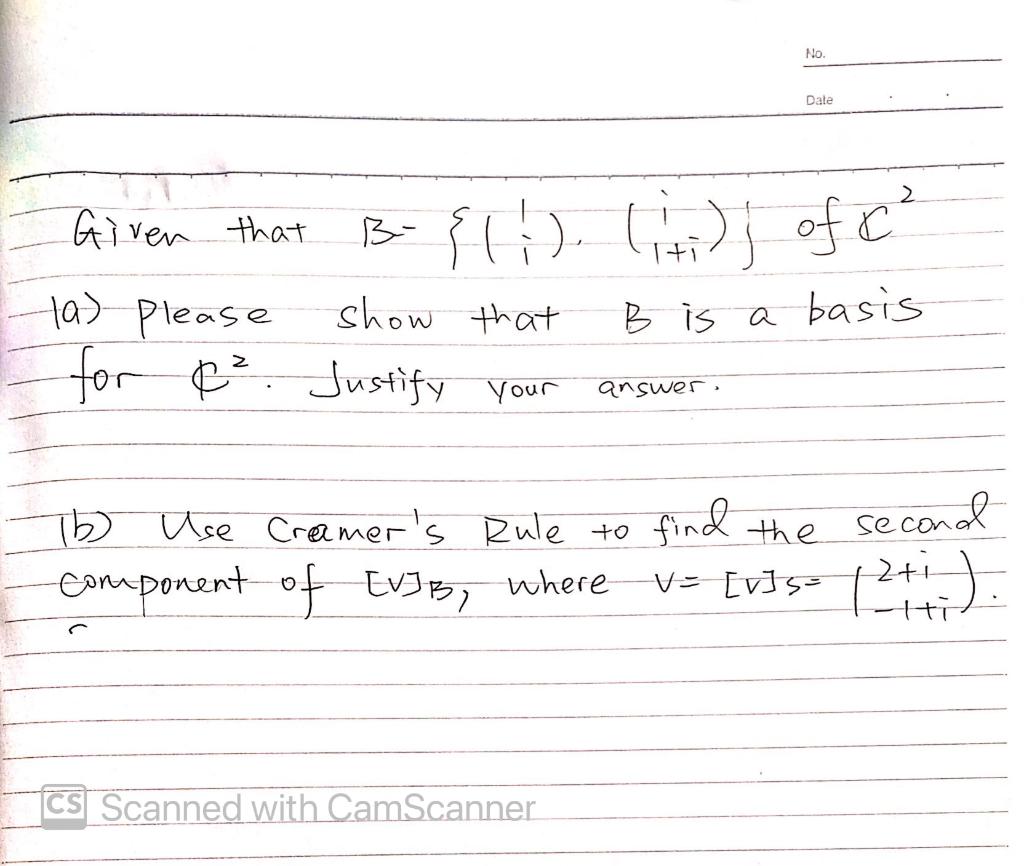 No.
Date
Given that B= {(1 i). (i 1+i)} of ℂ²
1a) Please show that B is a basis
for ℂ². Justify your answer.
1b) Use Cramer's Rule to find the second
component of [V]B, where V= [V]S= (2+i -1+i).
CS Scanned with CamScanner